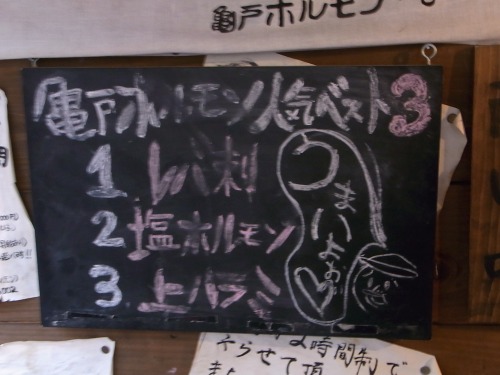 亀戸ホルモン
亀戸ホルモン人気ベスト3
1 レバ刺
2 塩ホルモン
3 上ハラミ
うまいよぉ♡
2時間制で
やらせて頂